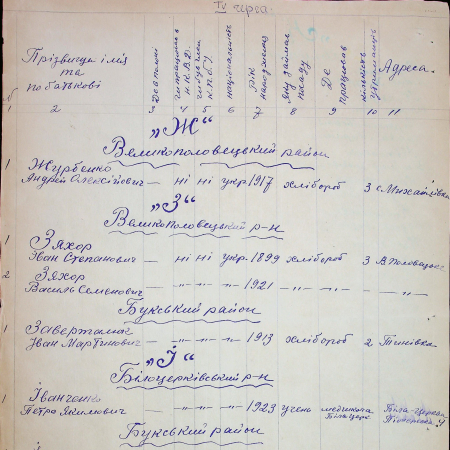 IV черга.
Прізвище ім'я та по батькові
національність
Рік народження
Яку займав посаду
Де працював
кількість утриманців
Адреса.
2 3 4 5 6 7 8 9 10 11
„Ж“
Великополовецький район
1 Журбенко Андрій Олексійович — ні ні укр. 1917 хлібороб 3 с. Михайлівка
„З“
Великополовецький р-н
1 Зяхор Іван Степанович — ні ні укр. 1899 хлібороб 3 В. Половецьке
2 Зяхор Василь Семенович — „ „ „ 1921 — „ — — „ — — — „ —
Букський район
1 Іван Мартинович — „ „ „ 1913 хлібороб 2 Тинівка
„І“
Білоцерківський р-н
1 Іванченко Петро Якимович — „ „ „ 1923 учень Біла-Церква
Букський район